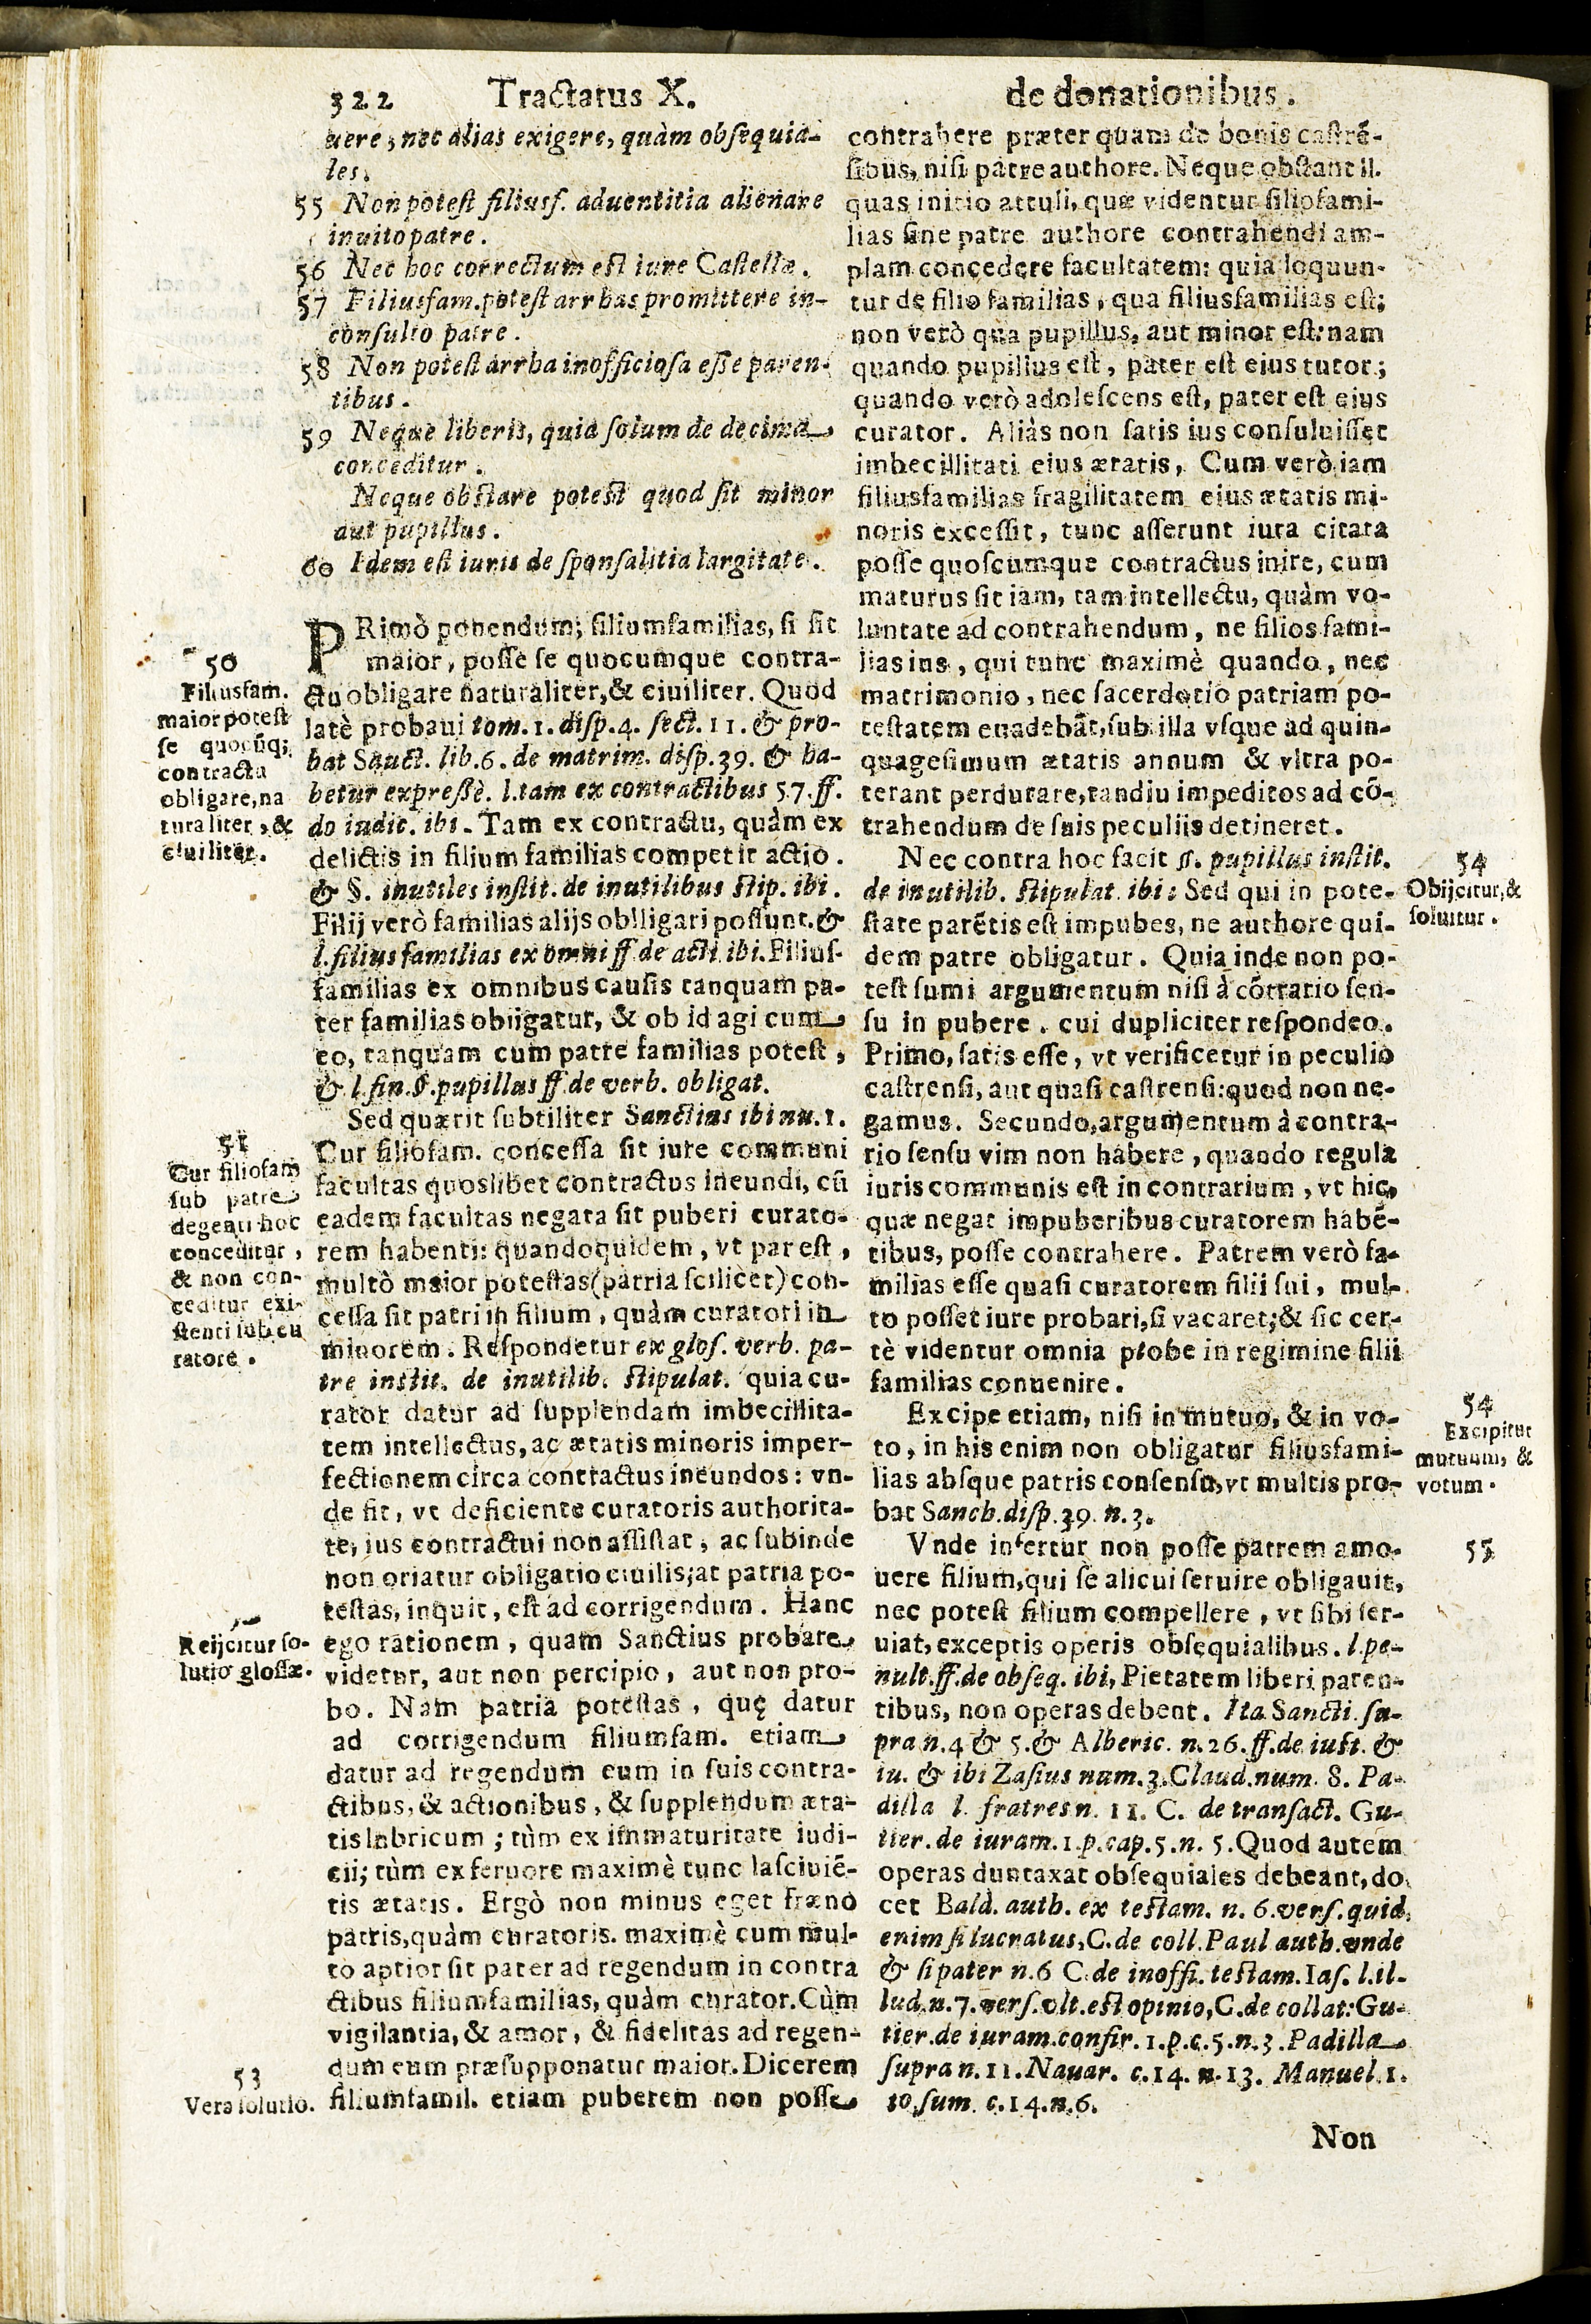 322 Tractatus X. de donationibus.
uere, nec alias exigere, quàm obsequia-
les.
55 Non potest filiusf. aduentitia alienare
inuito patre.
56 Nec hoc correctum est iure Castellæ.
57 Filiusfam. potest arrhas promittere in-
consulto patre.
58 Non potest arrha inofficiosa esse paren-
tibus.
59 Neque liberis, quia solum de decima
conceditur.
Neque obstare potest quod sit minor
aut pupillus.
60 Idem est iuris de sponsalitia largitate.
50
Filiusfam.
maior potest
se quocũq;
contractu
obligare, na
turaliter, &
ciuiliter.
PRimò ponendum; filiumfamilias, si sit
maior, posse se quocumque contra-
ctu obligare naturaliter, & ciuiliter. Quod
latè probaui tom. 1. disp. 4. sect. 11. & pro-
bat Sanct. lib. 6. de matrim. disp. 39. & ha-
betur expressè. l. tam ex contractibus 57. ff.
do iudic. ibi. Tam ex contractu, quàm ex
delictis in filium familias competit actio.
& §. inutiles instit. de inutilibus stip. ibi.
Filij verò familias alijs oblligari possunt. &
l. filius familias ex omni ff de acti ibi. Filius-
familias ex omnibus causis tanquam pa-
ter familias obligatur, & ob id agi cum
eo, tanquam cum patre familias potest,
& l. fin. §. pupillus ff. de verb. obligat.
51
Cur filiofam
sub patre
degenti hoc
conceditur,
& non con-
ceditur exi-
stenti sub cu
ratore.
Sed quærit subtiliter Sanctius ibi nu. 1.
Cur filiofam. concessa sit iure communi
facultas quoslibet contractus ineundi, cũ
eadem facultas negata sit puberi curato-
rem habenti: quandoquidem, vt par est,
multò maior potestas (patria scilicet) con-
cessa sit patri in filium, quàm curatori in
minorem. Respondetur ex glos. verb. pa-
tre instit. de inutilib. stipulat. quia cu-
rator datur ad supplendam imbecillita-
tem intellectus, ac ætatis minoris imper-
fectionem circa contractus ineundos: vn-
de fit, vt deficiente curatoris authorita-
te, ius contractui non assistat, ac subinde
non oriatur obligatio ciuilis; at patria po-
testas, inquit, est ad corrigendum. Hanc
Reijcitur so-
lutio glossæ.
ego rationem, quam Sanctius probare
videtur, aut non percipio, aut non pro-
bo. Nam patria potestas, quę datur
ad corrigendum filiumfam. etiam
datur ad regendum eum in suis contra-
ctibus, & actionibus, & supplendum æta-
tis lubricum; tùm ex immaturitate iudi-
cii; tùm ex feruore maximè tunc lasciuiẽ-
tis ætatis. Ergò non minus eget fræno
patris, quàm curatoris. maximè cum mul-
to aptior sit pater ad regendum in contra
ctibus filiumfamilias, quàm curator. Cùm
vigilantia, & amor, & fidelitas ad regen-
dum eum præsupponatur maior. Dicerem
53
Vera solutio.
filiumfamil. etiam puberem non posse
contrahere præter quam de bonis castrẽ-
sibus, nisi patre authore. Neque obstant ll.
quas initio attuli, quæ videntur filiofami-
lias sine patre authore contrahendi am-
plam concedere facultatem: quia loquun-
tur de filio familias, qua filiusfamilias est;
non verò qua pupillus, aut minor est: nam
quando pupillus est, pater est eius tutor;
quando verò adolescens est, pater est eius
curator. Aliàs non satis ius consuluisset
imbecillitati eius ætatis, Cum verò iam
filiusfamilias fragilitatem eius ætatis mi-
noris excessit, tunc asserunt iura citata
posse quoscumque contractus inire, cum
maturus sit iam, tam intellectu, quàm vo-
luntate ad contrahendum, ne filios fami-
lias ius, qui tunc maximè quando, nec
matrimonio, nec sacerdotio patriam po-
testatem euadebãt, sub illa vsque ad quin-
quagesimum ætatis annum & vltra po-
terant perdurare, tandiu impeditos ad cõ-
trahendum de suis peculiis detineret.
54
Obijcitur, &
soluitur.
Nec contra hoc facit §. pupillus instit.
de inutilib. stipulat. ibi: Sed qui in pote-
state parẽtis est impubes, ne authore qui-
dem patre obligatur. Quia inde non po-
test sumi argumentum nisi à cõtrario sen-
su in pubere. cui dupliciter respondeo.
Primo, satis esse, vt verificetur in peculio
castrensi, aut quasi castrensi: quod non ne-
gamus. Secundo, argumentum à contra-
rio sensu vim non habere, quando regula
iuris communis est in contrarium, vt hic,
quæ negat impuberibus curatorem habẽ-
tibus, posse contrahere. Patrem verò fa-
milias esse quasi curatorem filii sui, mul-
to posset iure probari, si vacaret; & sic cer-
tè videntur omnia probe in regimine filii
familias conuenire.
54
Excipitur
mutuum, &
votum.
Excipe etiam, nisi in mutuo, & in vo-
to, in his enim non obligatur filiusfami-
lias absque patris consensu, vt multis pro-
bat Sanch. disp. 39. n. 3.
55
Vnde infertur non posse patrem amo-
uere filium, qui se alicui seruire obligauit,
nec potest filium compellere, vt sibi ser-
uiat, exceptis operis obsequialibus. l. pe-
nult. ff. de obseq. ibi, Pietatem liberi paren-
tibus, non operas debent. Ita Sancti. su-
pra n. 4 & 5. & Alberic. n. 26. ff. de iust. &
iu. & ibi Zasius num. 3. Claud. num. 8. Pa-
dilla l. fratres n. 11. C. de transact. Gu-
tier. de iuram. 1. p. cap. 5. n. 5. Quod autem
operas duntaxat obsequiales debeant, do
cet Bald. auth. ex testam. n. 6. vers. quid,
enim si lucratus, C. de coll. Paul auth. unde
& si pater n. 6 C. de inoffi. testam. Ias. l. il-
lud. n. 7. vers. vlt. est opinio, C. de collat: Gu-
tier. de iuram. confir. 1. p. c. 5. n. 3. Padilla
supra n. 11. Nauar. c. 14. n. 13. Manuel. 1.
to, sum. c. 14. n. 6.
Non